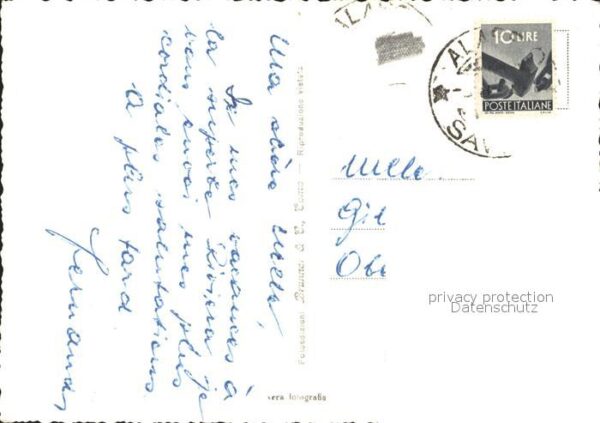 Ma chère Melle,
De mes vacances à
la superbe Riviera je
vous envoi mes plus
cordiales salutations.
A plus tard
Fernanda
Fotoedizioni Brunner & C., Como — Riproduzione vietata
Vera fotografia
ALA
ALA
SAV
10 LIRE
POSTE ITALIANE
Melle
Gil
Obe
privacy protection
Datenschutz